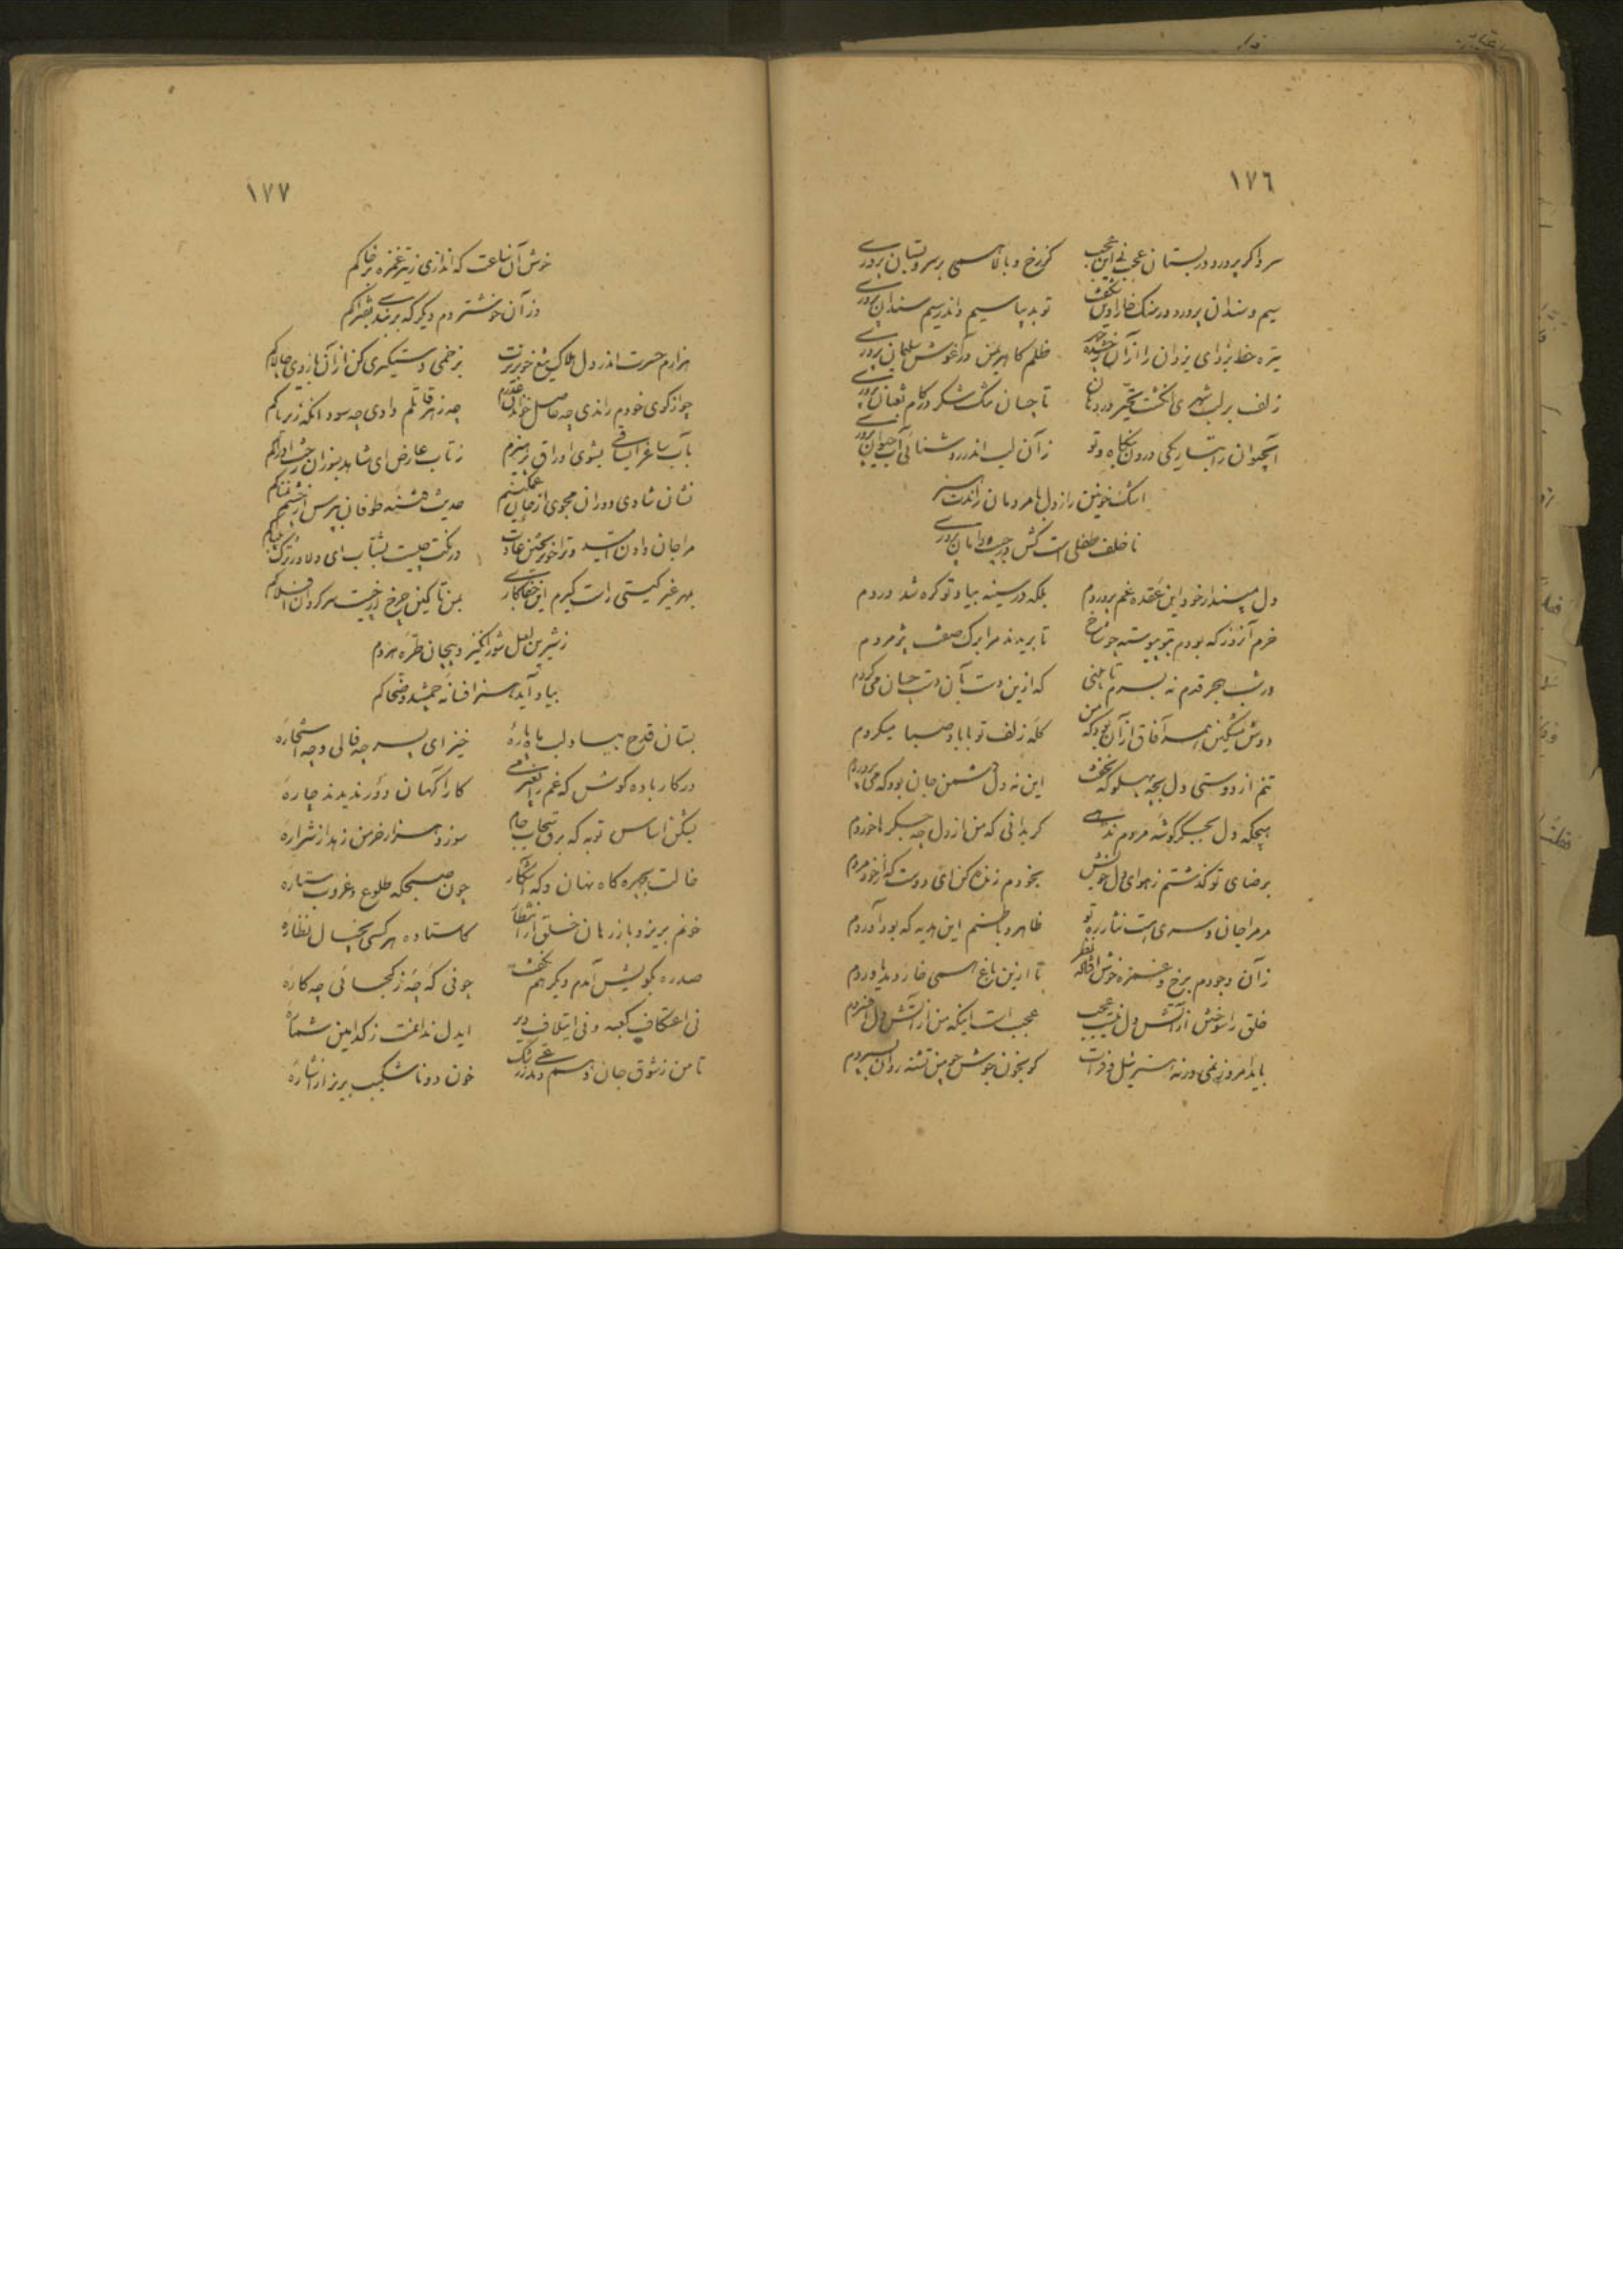 ١٧٦
سرو اگر پرورد در بستان عجب نی این عجب کز رخ و بالا همی بر سرو بستان پروری
سیم و سندان پرورد در سنگ خارا وین شگفت تو بدیبا سیم و اندر سیم سندان پروری
تیره خط بزدای یزدان را از آن ظلم کاهریمن در آغوش سلیمان پروری
زلف بر لب شهری انگشت تحیر در دهان تا چسان مشک و شکر در کام ثعبان پروری
آبحیوان را بتاریکی درون و تو زآن لب اندر روشنائی آب حیوان پروری
اشک خونین راز دل با مردمان راند
ناخلف طفلی است کش در دامان پروری
دل مپندار خود این عقده غم پروردم بلکه در سینه بیاد تو گره شد دردم
خرم آنروز که بودم بتو پیوسته چو شاخ تا بریدند مرا برگ صفت پژمردم
در شب هجر قدم نه بسرم تا بینی که ازین دست بآن دست چسان می‌گردم
دوش مشکین همه آفاق از آن بود که من گله زلف تو با باد صبا میکردم
تنم از دوستی دل بچه پهلو که نخفت این نه دل دشمن جان بود که می‌پروردم
هیچکه دل بجگرگوشه مردم ندهی گر بدانی که من از دل چه جگرها خوردم
برضای تو گذشتم ز هوای دل خویش بخودم زنده کن ای دوست که از خود مردم
مر مرا جان و سری هست نثار ره تو ظاهر و باطنم این هدیه که بود آوردم
زآن وجودم برخ و غمزه خوش افتاد نظر تا ازین باغ همی خار و بد ورودم
خلق را سوختن از آتش دل نیست عجب عجب است اینکه من از آتش دل افسردم
باید امروز نمی ورنه از نیل و فرات کو بخون جوش چو من تشنه روان بسپردم
١٧٧
خوش آن ساعت که اندازی ز تیر غمزه بر خاکم
وز آن خوشتر دم دیگر که بربندی بفتراکم
هزارم حسرت اندر دل هلاک تیغ خونریزت بزخمی دستگیری کن از آن بازوی چالاکم
چو از کوی خودم راندی چه حاصل چه زهر قاتلم دادی چه سود آنگه ز تریاکم
بآب ساغر ای ساقی بشوی اوراق پرهیزم ز تاب عارض ای شاهد بسوزان رخت ادراکم
نشان شادی دوران مجوی از جان غمگینم حدیث فتنه طوفان بپرس از چشم نمناکم
مرا جان دادن امید و ترا خون ریختن عادت درنگت چیست بشتاب ای
بهر غیر گیتی راست گیرم این جفاکاری بمن تا کینه چرخ از چیست سر گردان افلاکم
ز شیرین لعل شورانگیز و پیچان طره هر دم
بیاد آید همی افسانه جمشید و ضحاکم
بستان قدح بیاد لب ماه پاره خیز ای پسر چه فالی و چه استخاره
در کار باده کوش که غم را بغیر می کارآگهان دور ندیدند چاره
بشکن اساس توبه که برق سحاب جام سوزد هزار خرمن زهد از شراره
خالت بچهره گاه نهان و گه آشکار چون صبحگه طلوع و غروب ستاره
خونم بریز و بازرهان خلق ز انتظار کاستاده هر کسی بخیال نظاره
صد ره بکویش آمدم و دیگرم نگفت چونی که‌ٔ چه‌ٔ ز کجائی چه کاره
نی اعتکاف کعبه و نی ایتلاف دیر ایدل ندانمت ز کدامین شماره
تا من ز شوق جان دهم و مدعی ز رشک خون دو ناشکیب بریز از اشاره